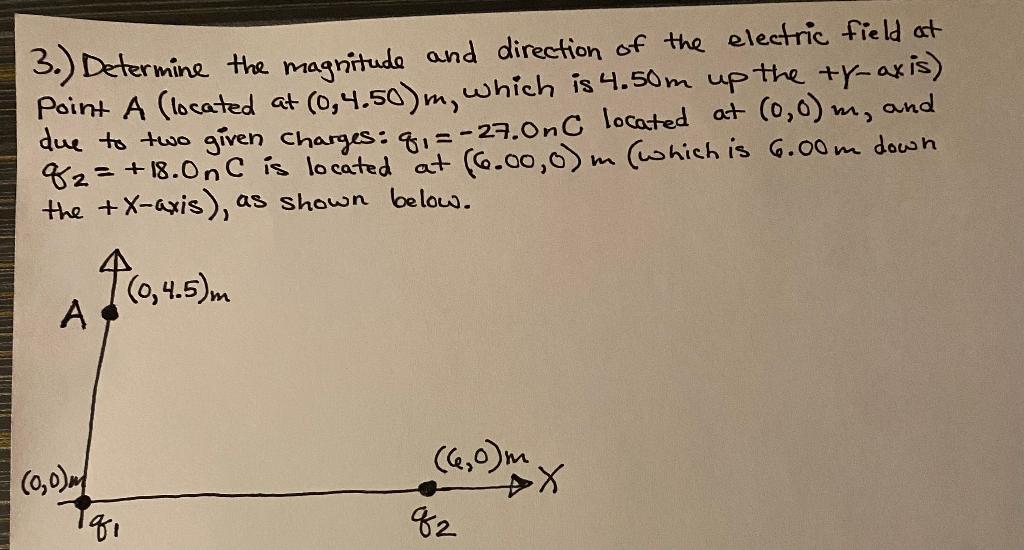 3.) Determine the magnitude and direction of the electric field at
Point A (located at (0,4.50)m, which is 4.50m up the +Y-axis)
due to two given charges: q₁ = -27.0nC located at (0,0) m, and
q₂ = +18.0nC is located at (6.00,0) m (which is 6.00m down
the +X-axis), as shown below.
(0,4.5)m
A
(6,0)m
(0,0)m
X
q₁
q₂